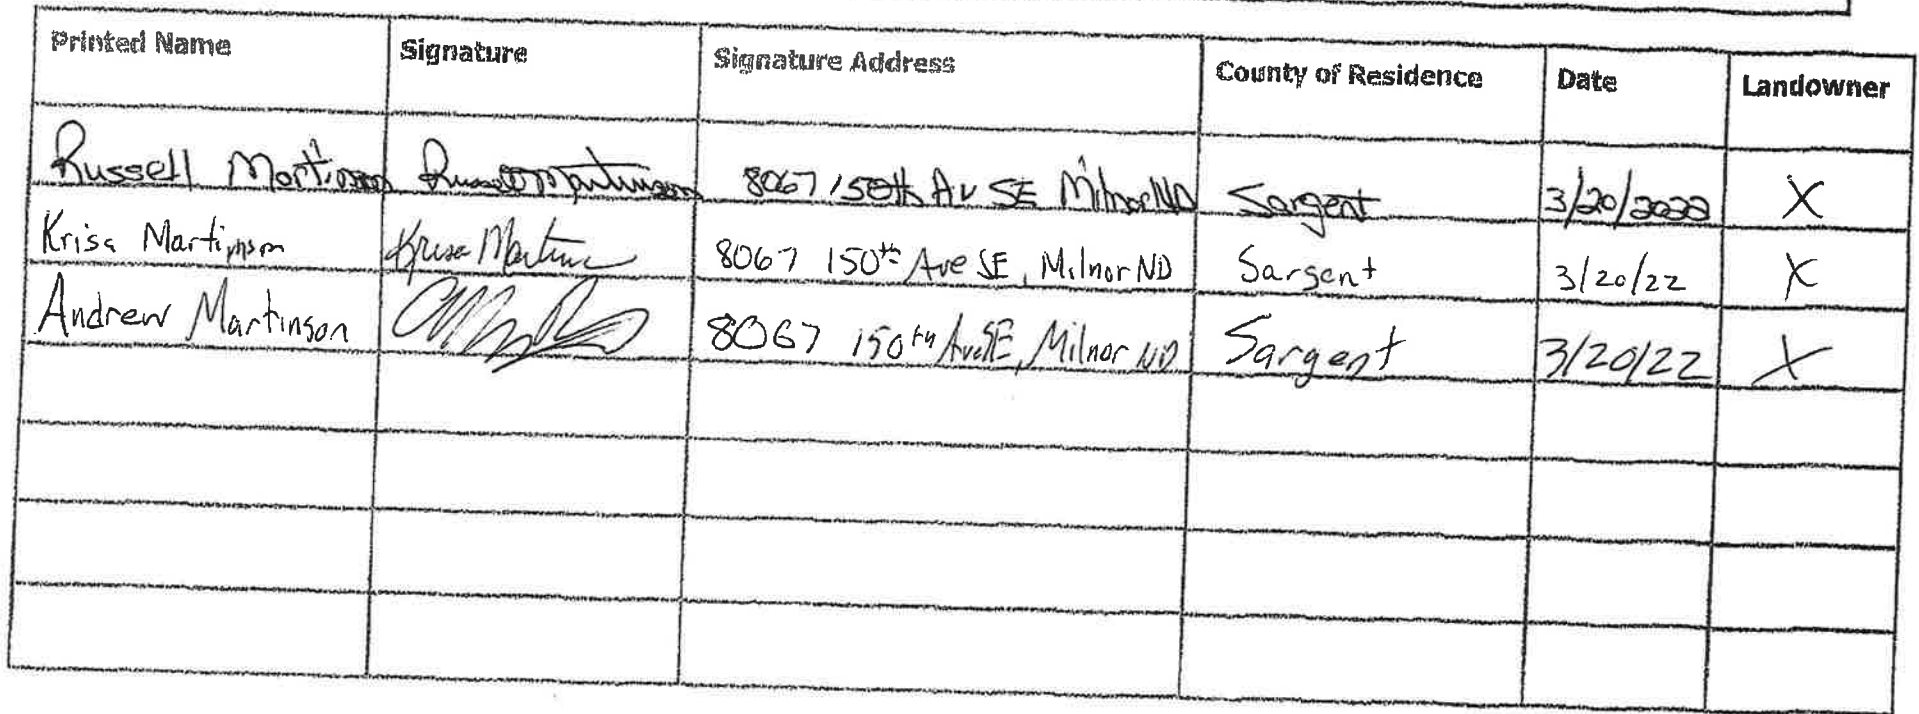 Printed Name Signature Signature Address County of Residence Date Landowner
Russell Martinson Russell Martinson 8067 150th Av SE Milnor ND Sargent 3/20/2022 X
Krisa Martinson Krisa Martinson 8067 150th Ave SE, Milnor ND Sargent 3/20/22 X
Andrew Martinson 8067 150th Ave SE, Milnor ND Sargent 3/20/22 X